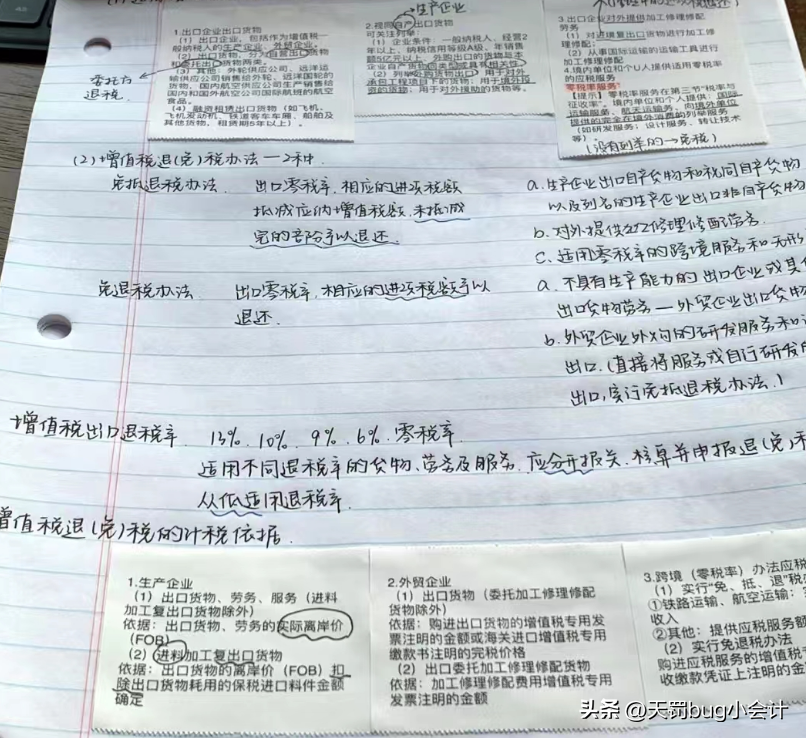 生产企业
1.出口企业出口货物
（1）出口企业，包括作为增值税一
般纳税人的生产企业、外贸企业。
（2）出口货物，分为自营出口货物
和委托出口货物两类。
（3）其他：外轮供应公司、远洋运
输供应公司销售给外轮、远洋国轮的
货物，国内航空供应公司生产销售给
国内和国外航空公司国际航班的航空
食品。
（4）融资租赁出口货物（如飞机、
飞机发动机、铁道客车车厢、船舶及
其他货物，租赁期5年以上）。
委托方
退税
2.视同自产出口货物
可关注列举：
（1）企业条件：一般纳税人、经营2
年以上、纳税信用等级A级、年销售
额5亿元以上、外购出口的货物与本
企业自产货物同类型或具有相关性
（2）列举外购货物出口：用于对外
承包工程项目下的货物；用于境外投
资的货物；用于对外援助的货物等。
3.出口企业对外提供加工修理修配
劳务
（1）对进境复出口货物进行加工修
理修配；
（2）从事国际运输的运输工具进行
加工修理修配
4.境内单位和个人提供适用零税率
的应税服务
零税率服务？
【提示】零税率服务在第三节“税率与
征收率”，境内单位和个人提供：国际
运输服务、航天运输服务、向境外单位
提供的完全在境外消费的列举服务
（如研发服务；设计服务、转让技术
等）
(没有列举的→免税)
(2)增值税退(免)税办法—2种
免抵退税办法 出口零税率,相应的进项税额
抵减应纳增值税额,未抵减
完的部分予以退还.
a.生产企业出口自产货物和视同自产货物
以及列名的生产企业出口非自产货物
b.对外提供加工修理修配劳务.
c.适用零税率的跨境服务和无形
免退税办法 出口零税率,相应的进项税额予以
退还.
a.不具有生产能力的出口企业或其他
出口货物劳务—外贸企业出口货物
b.外贸企业外购的研发服务和
出口.(直接将服务或自行研发
出口,实行免抵退税办法.)
增值税出口退税率. 13%. 10%. 9%. 6%. 零税率.
适用不同退税率的货物、劳务及服务,应分开报关、核算并申报退(免)税
从低适用退税率.
增值税退(免)税的计税依据.
1.生产企业
（1）出口货物、劳务、服务（进料
加工复出口货物除外）
依据：出口货物、劳务的实际离岸价
（FOB）
（2）进料加工复出口货物
依据：出口货物的离岸价（FOB）扣
除出口货物耗用的保税进口料件金额
确定
2.外贸企业
（1）出口货物（委托加工修理修配
货物除外）
依据：购进出口货物的增值税专用发
票注明的金额或海关进口增值税专用
缴款书注明的完税价格
（2）出口委托加工修理修配货物
依据：加工修理修配费用增值税专用
发票注明的金额
3.跨境（零税率）办法应税
（1）实行“免、抵、退”税
①铁路运输、航空运输：
收入
②其他：提供应税服务额
（2）实行免退税办法
购进应税服务的增值税专
收缴款凭证上注明的金
头条 @天罚bug小会计